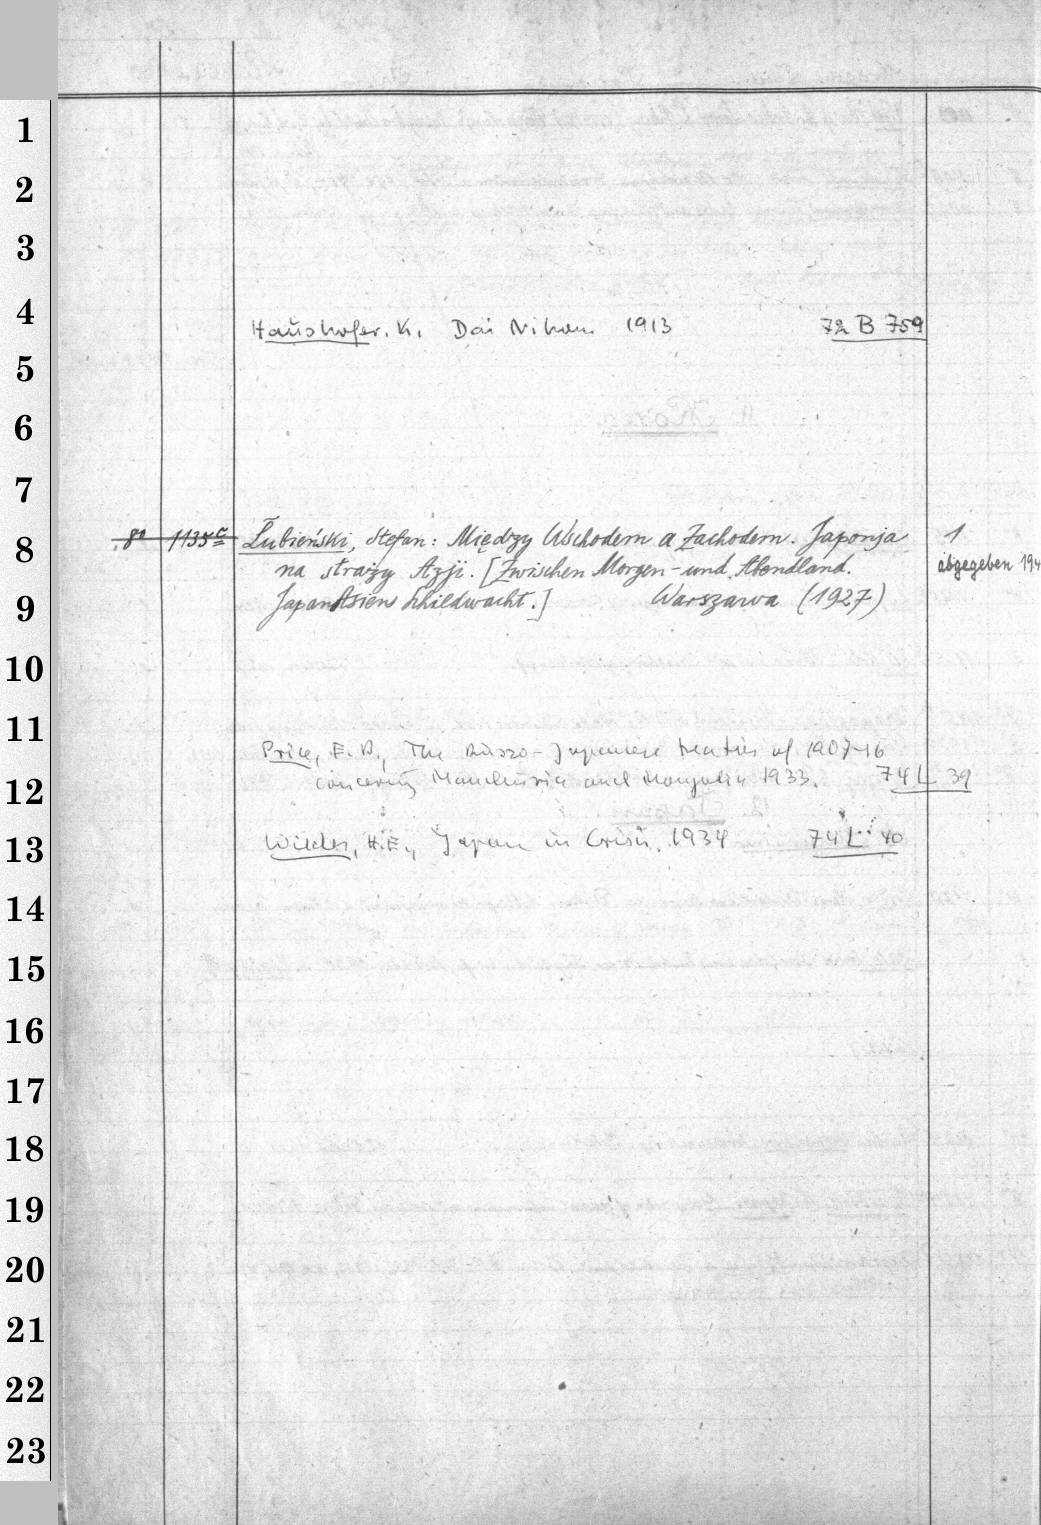 1
2
3
4
Haushofer. K. Dai Nihon 1913 72 B 759
5
6
7
8
8° 1135c Łubieński, Stefan: Między Wschodem a Zachodem. Japonja 1
na straży Azji. [Zwischen Morgen- und Abendland. abgegeben 194
9
Japan Asiens Schildwacht.] Warszawa (1927)
10
11
Price, E. B., The Russo-Japanese treaties of 1907-16
12
concerning Manchuria and Mongolia 1933. 74 L 39
13
Wildes, H.E., Japan in Crisis. 1934 74 L 40
14
15
16
17
18
19
20
21
22
23